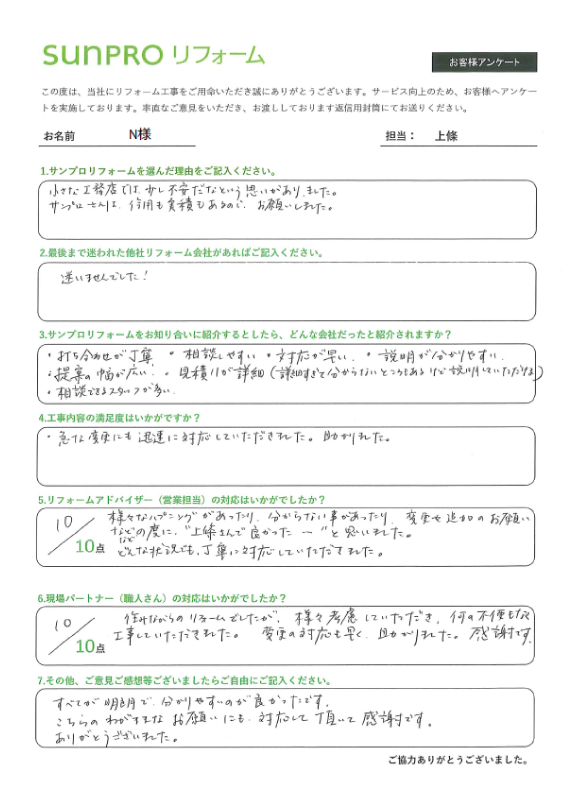 SUNPRO リフォーム
お客様アンケート
この度は、当社にリフォーム工事をご用命いただき誠にありがとうございます。サービス向上のため、お客様へアンケー
トを実施しております。率直なご意見をいただき、お渡ししております返信用封筒にてお送りください。
お名前 N様 担当： 上條
1.サンプロリフォームを選んだ理由をご記入ください。
小さな工務店では少し不安だなという思いがありました。
サンプロさんは、信用も実積もあるので、お願いしました。
2.最後まで迷われた他社リフォーム会社があればご記入ください。
迷いませんでした！
3.サンプロリフォームをお知り合いに紹介するとしたら、どんな会社だったと紹介されますか？
・打ち合わせが丁寧 ・相談しやすい ・対応が早い ・説明が分かりやすい
・提案の幅が広い ・見積りが詳細（詳細すぎて分からないところもあるので説明していただけば）
・相談できるスタッフが多い
4.工事内容の満足度はいかがですか？
・急な変更にも迅速に対応していただきました。助かりました。
5.リフォームアドバイザー（営業担当）の対応はいかがでしたか？
10／10点
様々なハプニングがあったり、分からない事があったり、変更や追加のお願い
などの度に、"上條さんで良かったー"と思いました。
どんな状況でも、丁寧に対応していただきました。
6.現場パートナー（職人さん）の対応はいかがでしたか？
10／10点
住みながらのリフォームでしたが、様々考慮していただき、何の不便もなく
工事していただきました。変更の対応も早く、助かりました。感謝です。
7.その他、ご意見ご感想等ございましたらご自由にご記入ください。
すべてが明朗で、分かりやすいのが良かったです。
こちらのわがままなお願いにも、対応して頂いて感謝です。
ありがとうございました。
ご協力ありがとうございました。